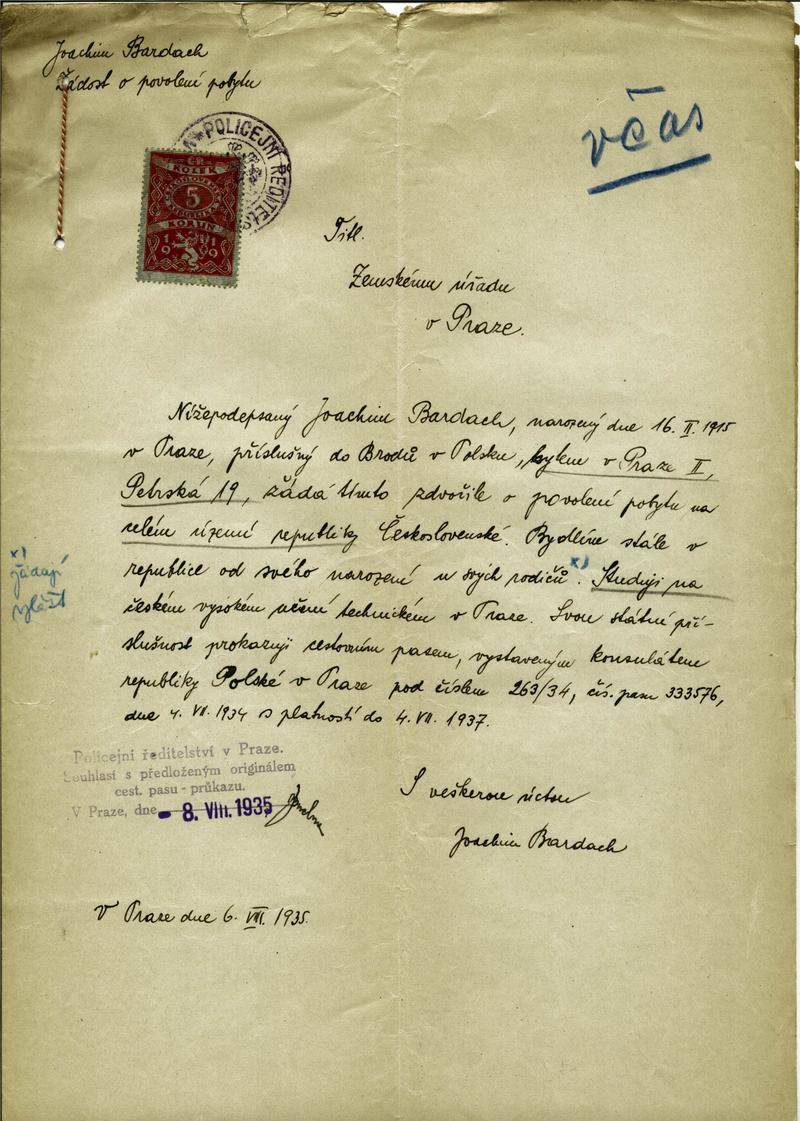 Joachim Bardach
Žádost o povolení pobytu
POLICEJNÍ ŘEDITELS
včas
KOLEK
5
KORUN
1919
Titl.
Zemskému úřadu
v Praze.
Nížepodepsaný Joachim Bardach, narozený dne 16. II. 1915
v Praze, příslušný do Brodů v Polsku, bytem v Praze II,
Petrská 19, žádá tímto zdvořile o povolení pobytu na
celém území republiky Československé. Bydlím stále v
republice od svého narození u svých rodičů x). Studuji na
českém vysokém učení technickém v Praze. Svou státní pří-
slušnost prokazuji cestovním pasem, vystaveným konsulátem
republiky Polské v Praze pod číslem 263/34, čís. pasu 333576,
dne 4. VII. 1934 s platností do 4. VII. 1937.
x)
žádají
zvlášt
Policejní ředitelství v Praze.
Souhlasí s předloženým originálem
cest. pasu - průkazu.
V Praze, dne - 8. VIII. 1935
S veškerou úctou
Joachim Bardach
V Praze dne 6. VIII. 1935.